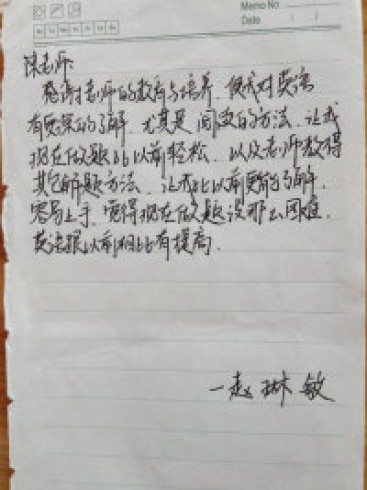 Memo No.
Date / /
Mo Tu We Th Fr Sa Su
陈老师:
感谢老师的教育与培养,使我对英语
有更深的了解,尤其是阅读的方法,让我
现在做题比以前轻松,以及老师教得
其它解题方法,让我比以前更能了解,
容易上手,觉得现在做题没那么困难,
英语跟以前相比有提高.
—赵琳敏